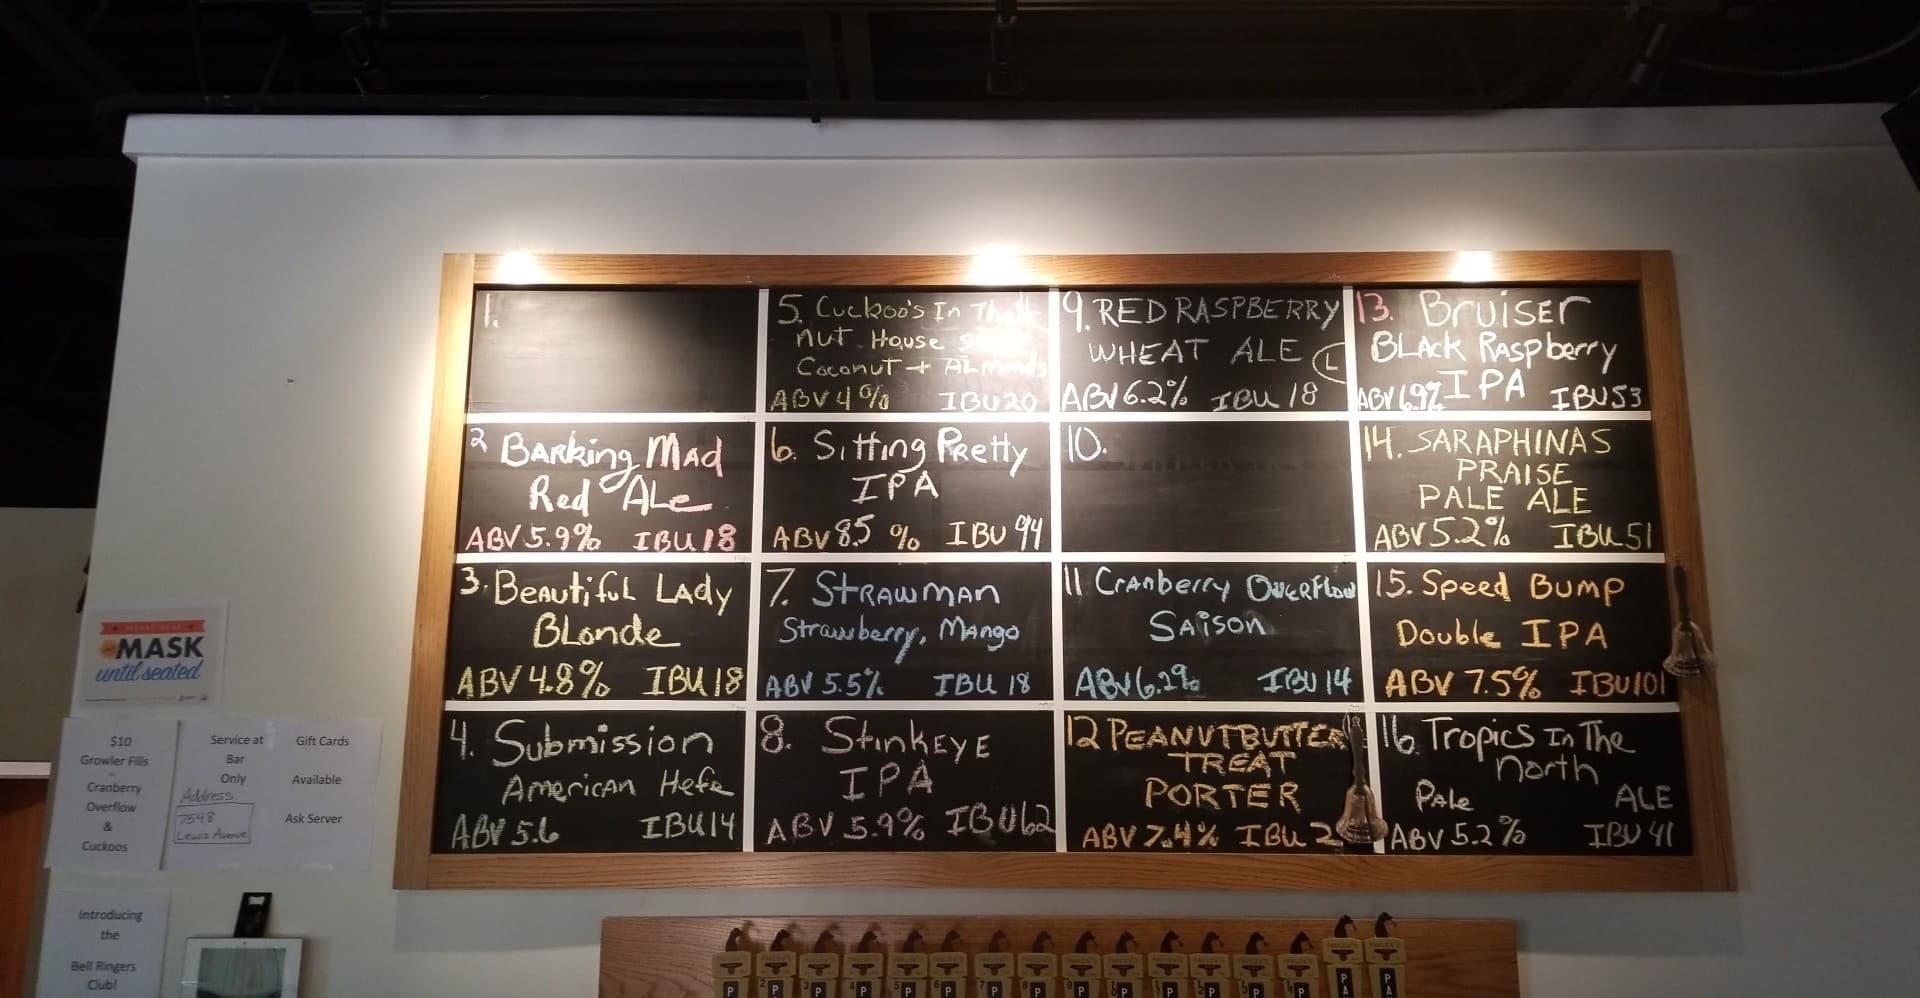 1.
2 Barking Mad
Red Ale
ABV 5.9% IBU 18
3. Beautiful Lady
Blonde
ABV 4.8% IBU 18
4. Submission
American Hefe
ABV 5.6 IBU 14
5. Cuckoo's In The
Nut House
Coconut + Almonds
ABV 4% IBU 20
6. Sitting Pretty
IPA
ABV 8.5 % IBU 94
7. Strawman
Strawberry, Mango
ABV 5.5% IBU 18
8. Stinkeye
IPA
ABV 5.9% IBU 62
9. RED RASPBERRY
WHEAT ALE L
ABV 6.2% IBU 18
10.
11 Cranberry Overflow
Saison
ABV 6.2% IBU 14
12 PEANUTBUTTER
TREAT
PORTER
ABV 7.4% IBU 2
13. Bruiser
Black Raspberry
IPA
ABV 6.9% IBU 53
14. SARAPHINAS
PRAISE
PALE ALE
ABV 5.2% IBU 51
15. Speed Bump
Double IPA
ABV 7.5% IBU 101
16. Tropics In The
North
Pale ALE
ABV 5.2% IBU 41
MASK
until seated
$10
Growler Fills
Cranberry
Overflow
&
Cuckoos
Service at
Bar
Only
Address
7548
Lewis Avenue
Gift Cards
Available
Ask Server
Introducing
the
Bell Ringers
Club!